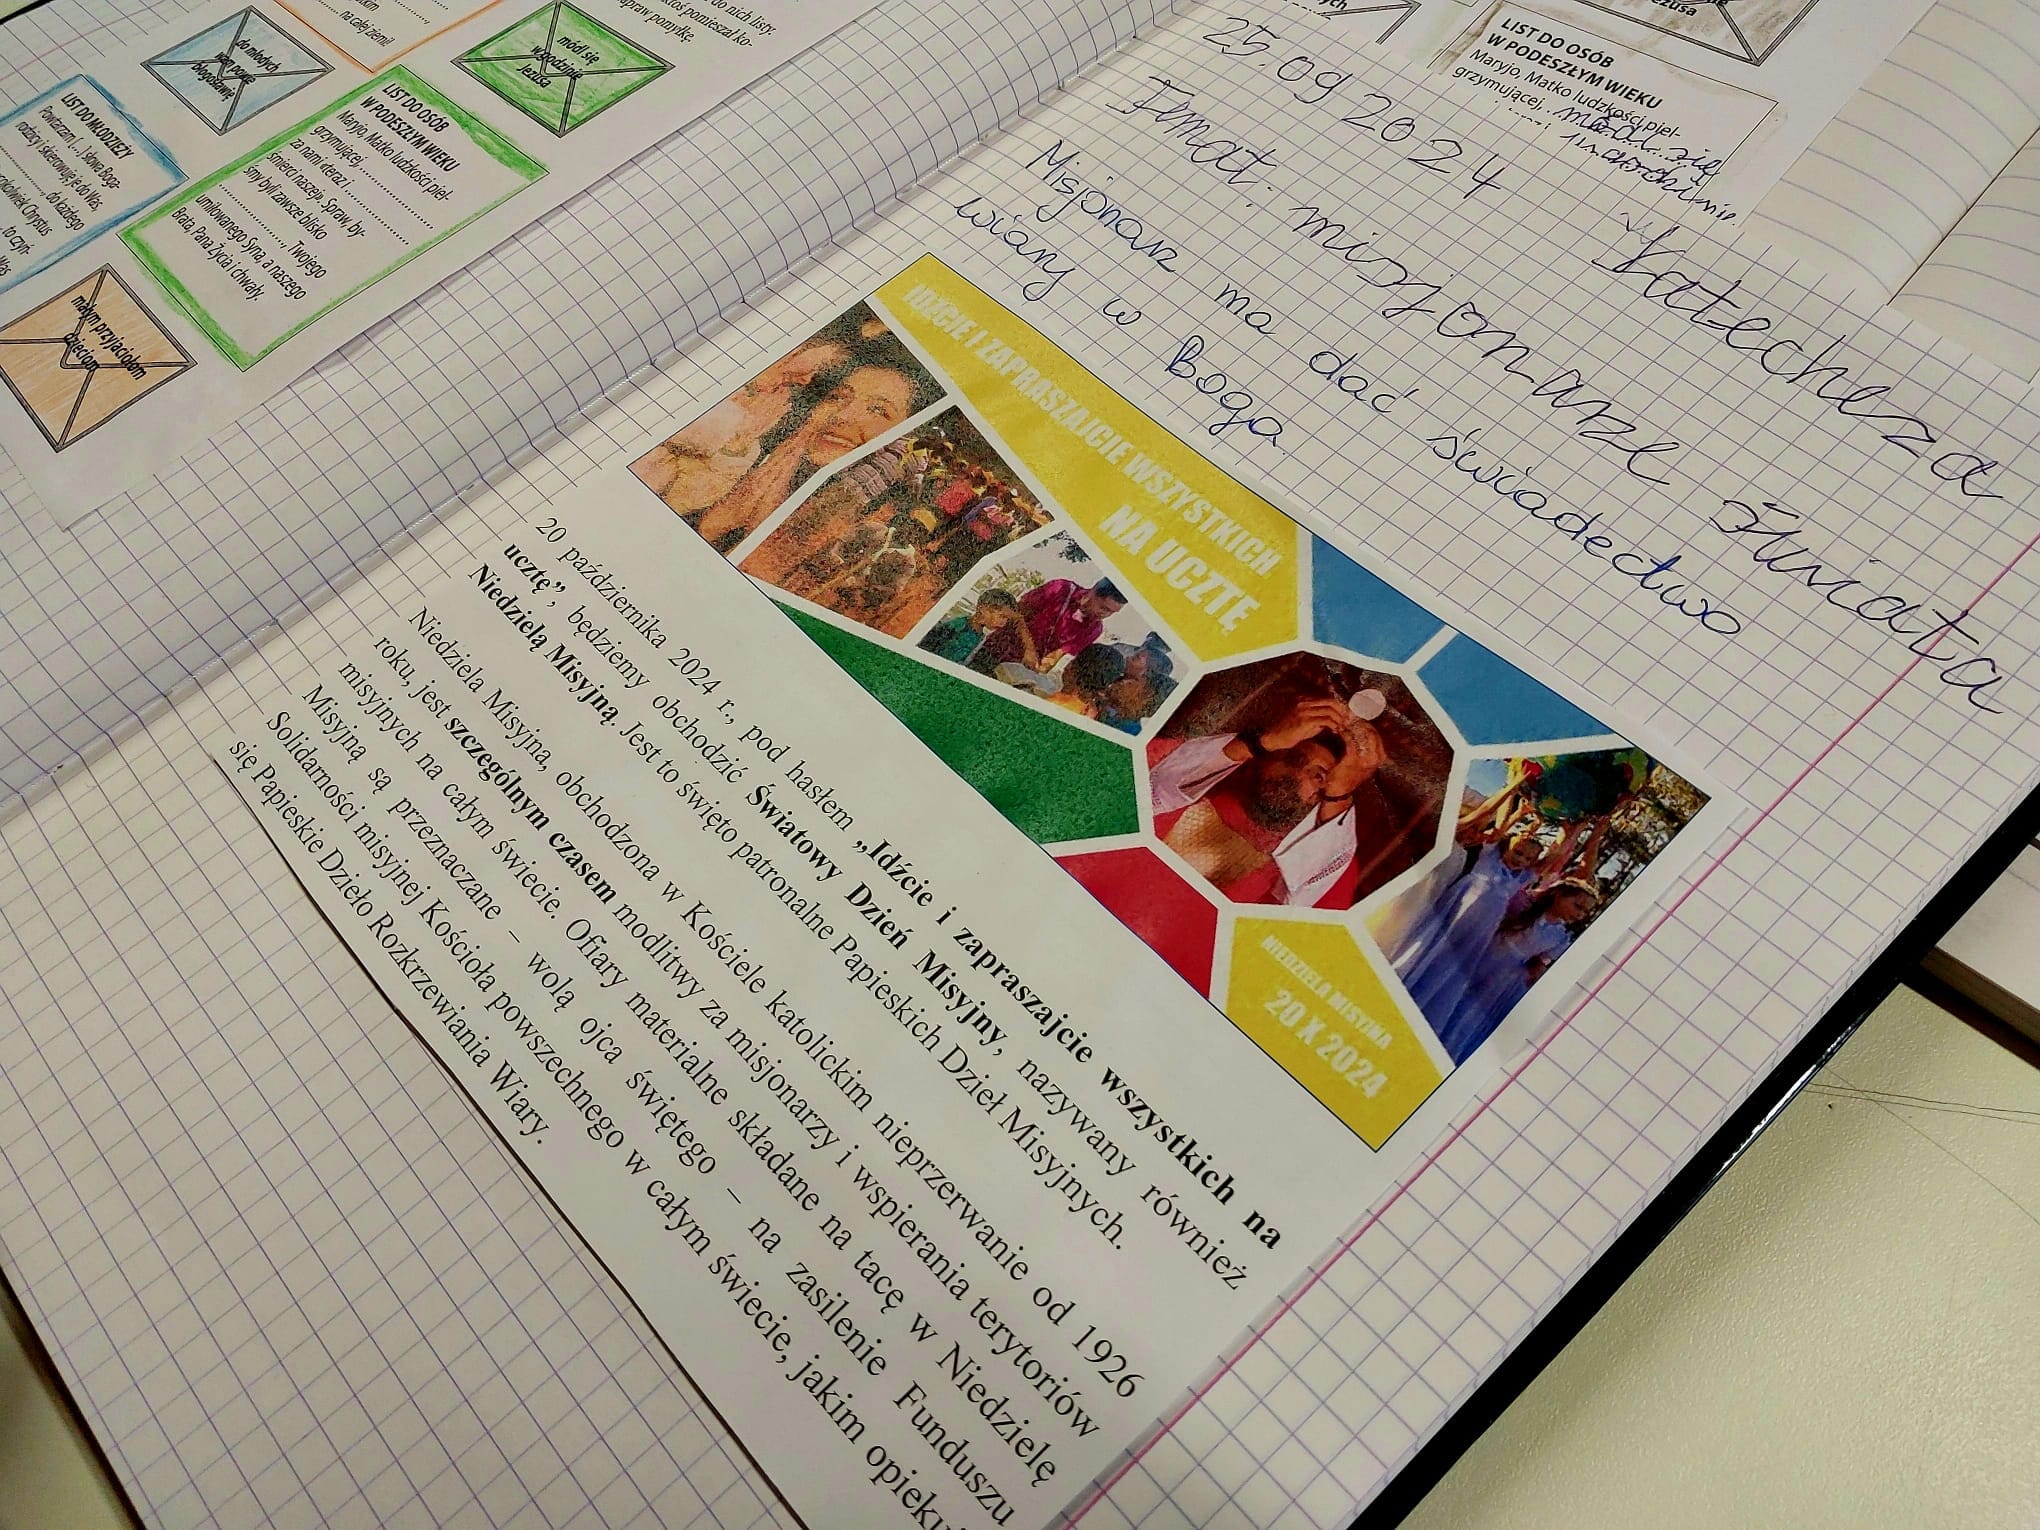 na całej ziemi!
do nich listy.
ktoś pomieszał ko-
napraw pomyłkę.
do młodych
wam powie
błogosławię
módl się
w godzinie
Jezusa
LIST DO MŁODZIEŻY
Powtarzam [...] słowa Boga-
rodzicy i skierowuję je do Was,
do każdego
Chrystus
to czyń-
LIST DO OSÓB
W PODESZŁYM WIEKU
Maryjo, Matko ludzkości piel-
grzymującej
za nami «teraz i
śmierci naszej». Spraw, by-
śmy byli zawsze blisko
umiłowanego Syna, a naszego
Brata, Pana Życia i chwały.
Twojego
małym przyjaciołom
dzieciom
Jezusa
LIST DO OSÓB
W PODESZŁYM WIEKU
Maryjo, Matko ludzkości piel-
grzymującej,
módl się
25.09 2024 Katecheza
Temat: misjonarze świata
Misjonarz ma dać świadectwo
wiary w Boga
IDŹCIE I ZAPRASZAJCIE WSZYSTKICH
NA UCZTĘ
NIEDZIELA MISYJNA
20 X 2024
20 października 2024 r., pod hasłem „Idźcie i zapraszajcie wszystkich na
ucztę”, będziemy obchodzić Światowy Dzień Misyjny, nazywany również
Niedzielą Misyjną. Jest to święto patronalne Papieskich Dzieł Misyjnych.
Niedziela Misyjna, obchodzona w Kościele katolickim nieprzerwanie od 1926
roku, jest szczególnym czasem modlitwy za misjonarzy i wspierania terytoriów
misyjnych na całym świecie. Ofiary materialne składane na tacę w Niedzielę
Misyjną są przeznaczane – wolą ojca świętego – na zasilenie Funduszu
Solidarności misyjnej Kościoła powszechnego w całym świecie, jakim
się Papieskie Dzieło Rozkrzewiania Wiary.